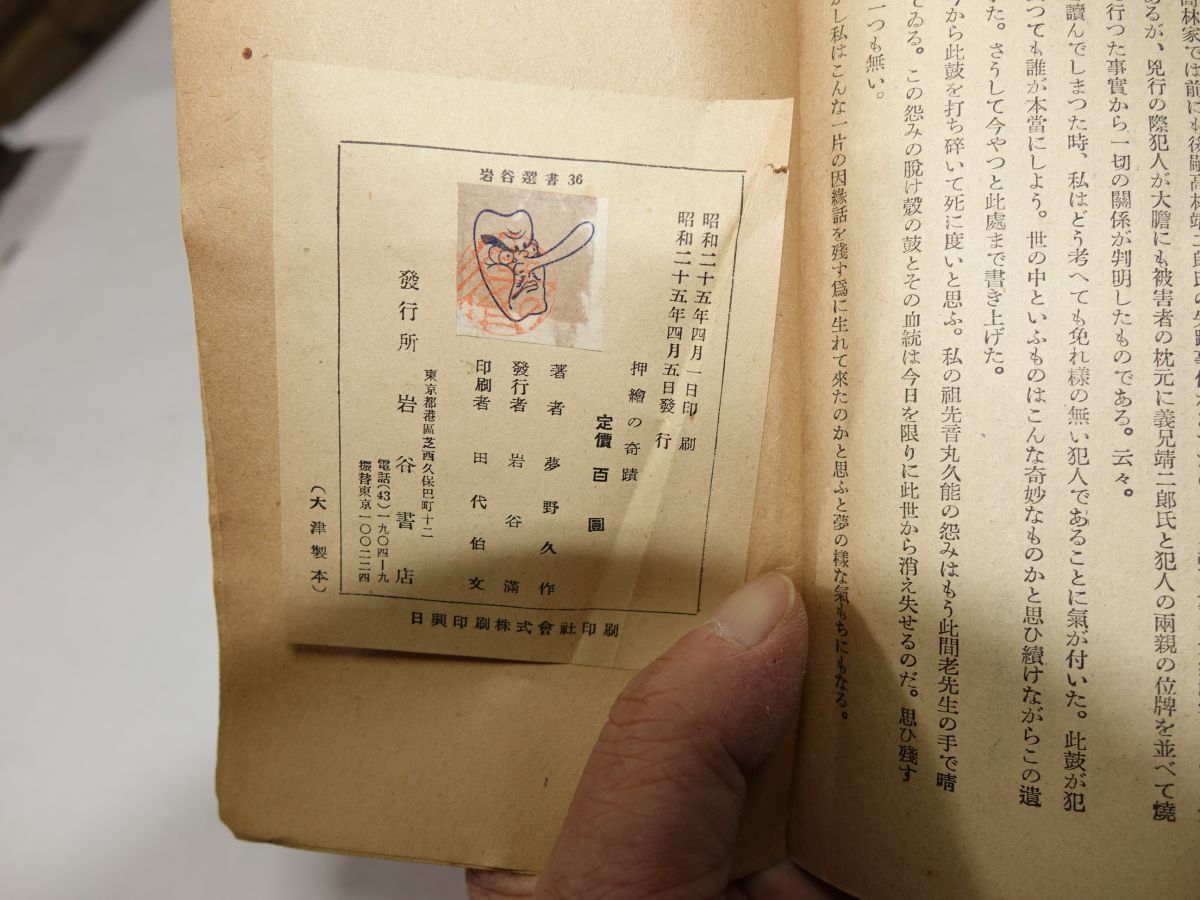 高林家では前にも後嗣高林靖二郎氏の失踪事件が
あるが、兇行の際犯人が大膽にも被害者の枕元に義兄靖二郎氏と犯人の兩親の位牌を並べて燒
行つた事實から一切の關係が判明したものである。云々。
讀んでしまつた時、私はどう考へても免れ樣の無い犯人であることに氣が付いた。此鼓が犯
つても誰が本當にしよう。世の中といふものはこんな奇妙なものかと思ひ續けながらこの遺
た。さうして今やつと此處まで書き上げた。
から此鼓を打ち碎いて死に度いと思ふ。私の祖先音丸久能の怨みはもう此間老先生の手で晴
てゐる。この怨みの脱け殼の鼓とその血統は今日を限りに此世から消え失せるのだ。思ひ殘す
一つも無い。
かし私はこんな一片の因緣話を殘す爲に生れて來たのかと思ふと夢の樣な氣もちにもなる。
岩谷選書 36
昭和二十五年四月一日印刷
昭和二十五年四月五日發行
押繪の奇蹟
定價百圓
著者 夢野久作
發行者 岩谷滿
印刷者 田代伯文
東京都港區芝西久保巴町十二
發行所 岩谷書店
電話(43)一九〇四—九
振替東京一〇〇二二四
(大津製本)
日興印刷株式會社印刷